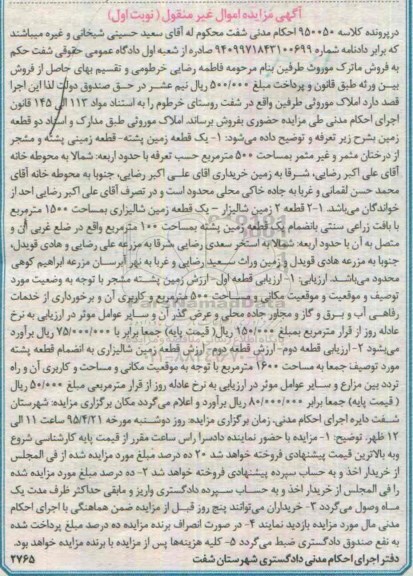 آگهی مزایده اموال غیر منقول ( نوبت اول )
درپرونده کلاسه ۹۵۰۰۵۰ احکام مدنی شفت محکوم له آقای سعید حسینی شیخانی و غیره میباشند
که برابر دادنامه شماره ۹۴۰۹۹۷۱۸۴۳۱۰۰۶۹۹ صادره از شعبه اول دادگاه عمومی حقوقی شفت حکم
به فروش ماترک موروث طرفین بنام مرحومه فاطمه رضایی خرطومی و تقسیم بهای حاصل از فروش
بین ورثه طبق قانون و پرداخت مبلغ ۵۰۰/۰۰۰ ریال نیم عشر در حق صندوق دولت لذا این اجرا
قصد دارد املاک موروثی طرفین واقع در شفت روستای خرطوم را به استناد مواد ۱۱۳ الی ۱۴۵ قانون
اجرای احکام مدنی طی مزایده حضوری بفروش برساند. املاک موروثی طبق مدارک و اسناد دو قطعه
زمین بشرح زیر تعرفه و توضیح داده می‌شود: ۱- یک قطعه زمین پشته- قطعه زمینی پشته و مشجر
از درختان مثمر و غیر مثمر بمساحت ۵۰۰ مترمربع حسب تعرفه با حدود اربعه: شمالا به محوطه خانه
آقای علی اکبر رضایی، شرقا به زمین خریداری آقای علی اکبر رضایی، جنوبا به محوطه خانه آقای
محمد حسن لقمانی و غربا به جاده خاکی محلی محدود است و در تصرف آقای علی اکبر رضایی احد از
خواندگان می‌باشد. ۱-۲ قطعه ۲ زمین شالیزار – یک قطعه زمین شالیزاری بمساحت ۱۵۰۰ مترمربع
با بافت زراعی سنتی بانضمام یک قطعه زمین پشته بمساحت ۱۰۰ مترمربع واقع در ضلع غربی آن و
متصل به آن با حدود اربعه: شمالا به استخر سعدی رضایی، شرقا به مزرعه علی رضایی و هادی قویدل،
جنوبا به مزرعه هادی قویدل و زمین وراث سعید رضایی و غربا به نهر آبرسان مزرعه ابراهیم کوهی
محدود می‌باشد. ارزیابی: ۱- ارزیابی قطعه اول- ارزش زمین پشته مشجر با توجه به وضعیت مورد
توصیف و موقعیت و موقعیت مکانی و مساحت ۵۰۰ مترمربع و کاربری آن و برخورداری از خدمات
رفاهی آب و برق و گاز و مجاور جاده محلی و عرض گذر آن و سایر عوامل موثر در ارزیابی به نرخ
عادله روز از قرار مترمربع بمبلغ ۱۵۰/۰۰۰ ریال ( قیمت پایه) جمعا برابر با ۷۵/۰۰۰/۰۰۰ ریال برآورد
میشود ۲- ارزیابی قطعه دوم- ارزش قطعه دوم- ارزش قطعه زمین شالیزاری به انضمام قطعه پشته
مورد توصیف جمعا به مساحت ۱۶۰۰ مترمربع با توجه به موقعیت مکانی و مساحت و کاربری آن و راه
تردد بین مزارع و سایر عوامل موثر در ارزیابی به نرخ عادله روز از قرار مترمربعی مبلغ ۵۰/۰۰۰ ریال
( قیمت پایه) جمعا برابر ۸۰/۰۰۰/۰۰۰ ریال برآورد و اعلام می‌گردد مکان برگزاری مزایده: شهرستان
شفت دایره اجرای احکام مدنی. زمان برگزاری مزایده: روز دوشنبه مورخه ۹۵/۴/۲۱ ساعت ۱۱ الی
۱۲ ظهر. توضیح: ۱- مزایده با حضور نماینده دادسرا راس ساعت مقرر از قیمت پایه کارشناسی شروع
وبه بالاترین قیمت پیشنهادی فروخته خواهد شد ۲۰ ده درصد مبلغ مورد مزایده شده از فی المجلس
از خریدار اخذ و به حساب سپرده پیشنهادی فروخته خواهد شد ۲- ده درصد مبلغ مورد مزایده شده
را فی المجلس از خریدار اخذ و به حساب سپرده دادگستری واریز و مابقی حداکثر ظرف مدت یک
ماه وصول می‌گردد ۳- خریداران می‌توانند پنج روز قبل از مزایده ضمن هماهنگی با اجرای احکام
مدنی مال مورد مزایده بازدید نمایند ۴- در صورت انصراف برنده مزایده ده درصد مبلغ پرداخت شده
به نفع صندوق دادگستری ضبط می‌گردد ۵- کلیه هزینه‌ها پس از مزایده با برنده مزایده خواهد بود.
دفتر اجرای احکام مدنی دادگستری شهرستان شفت ۲۷۶۵